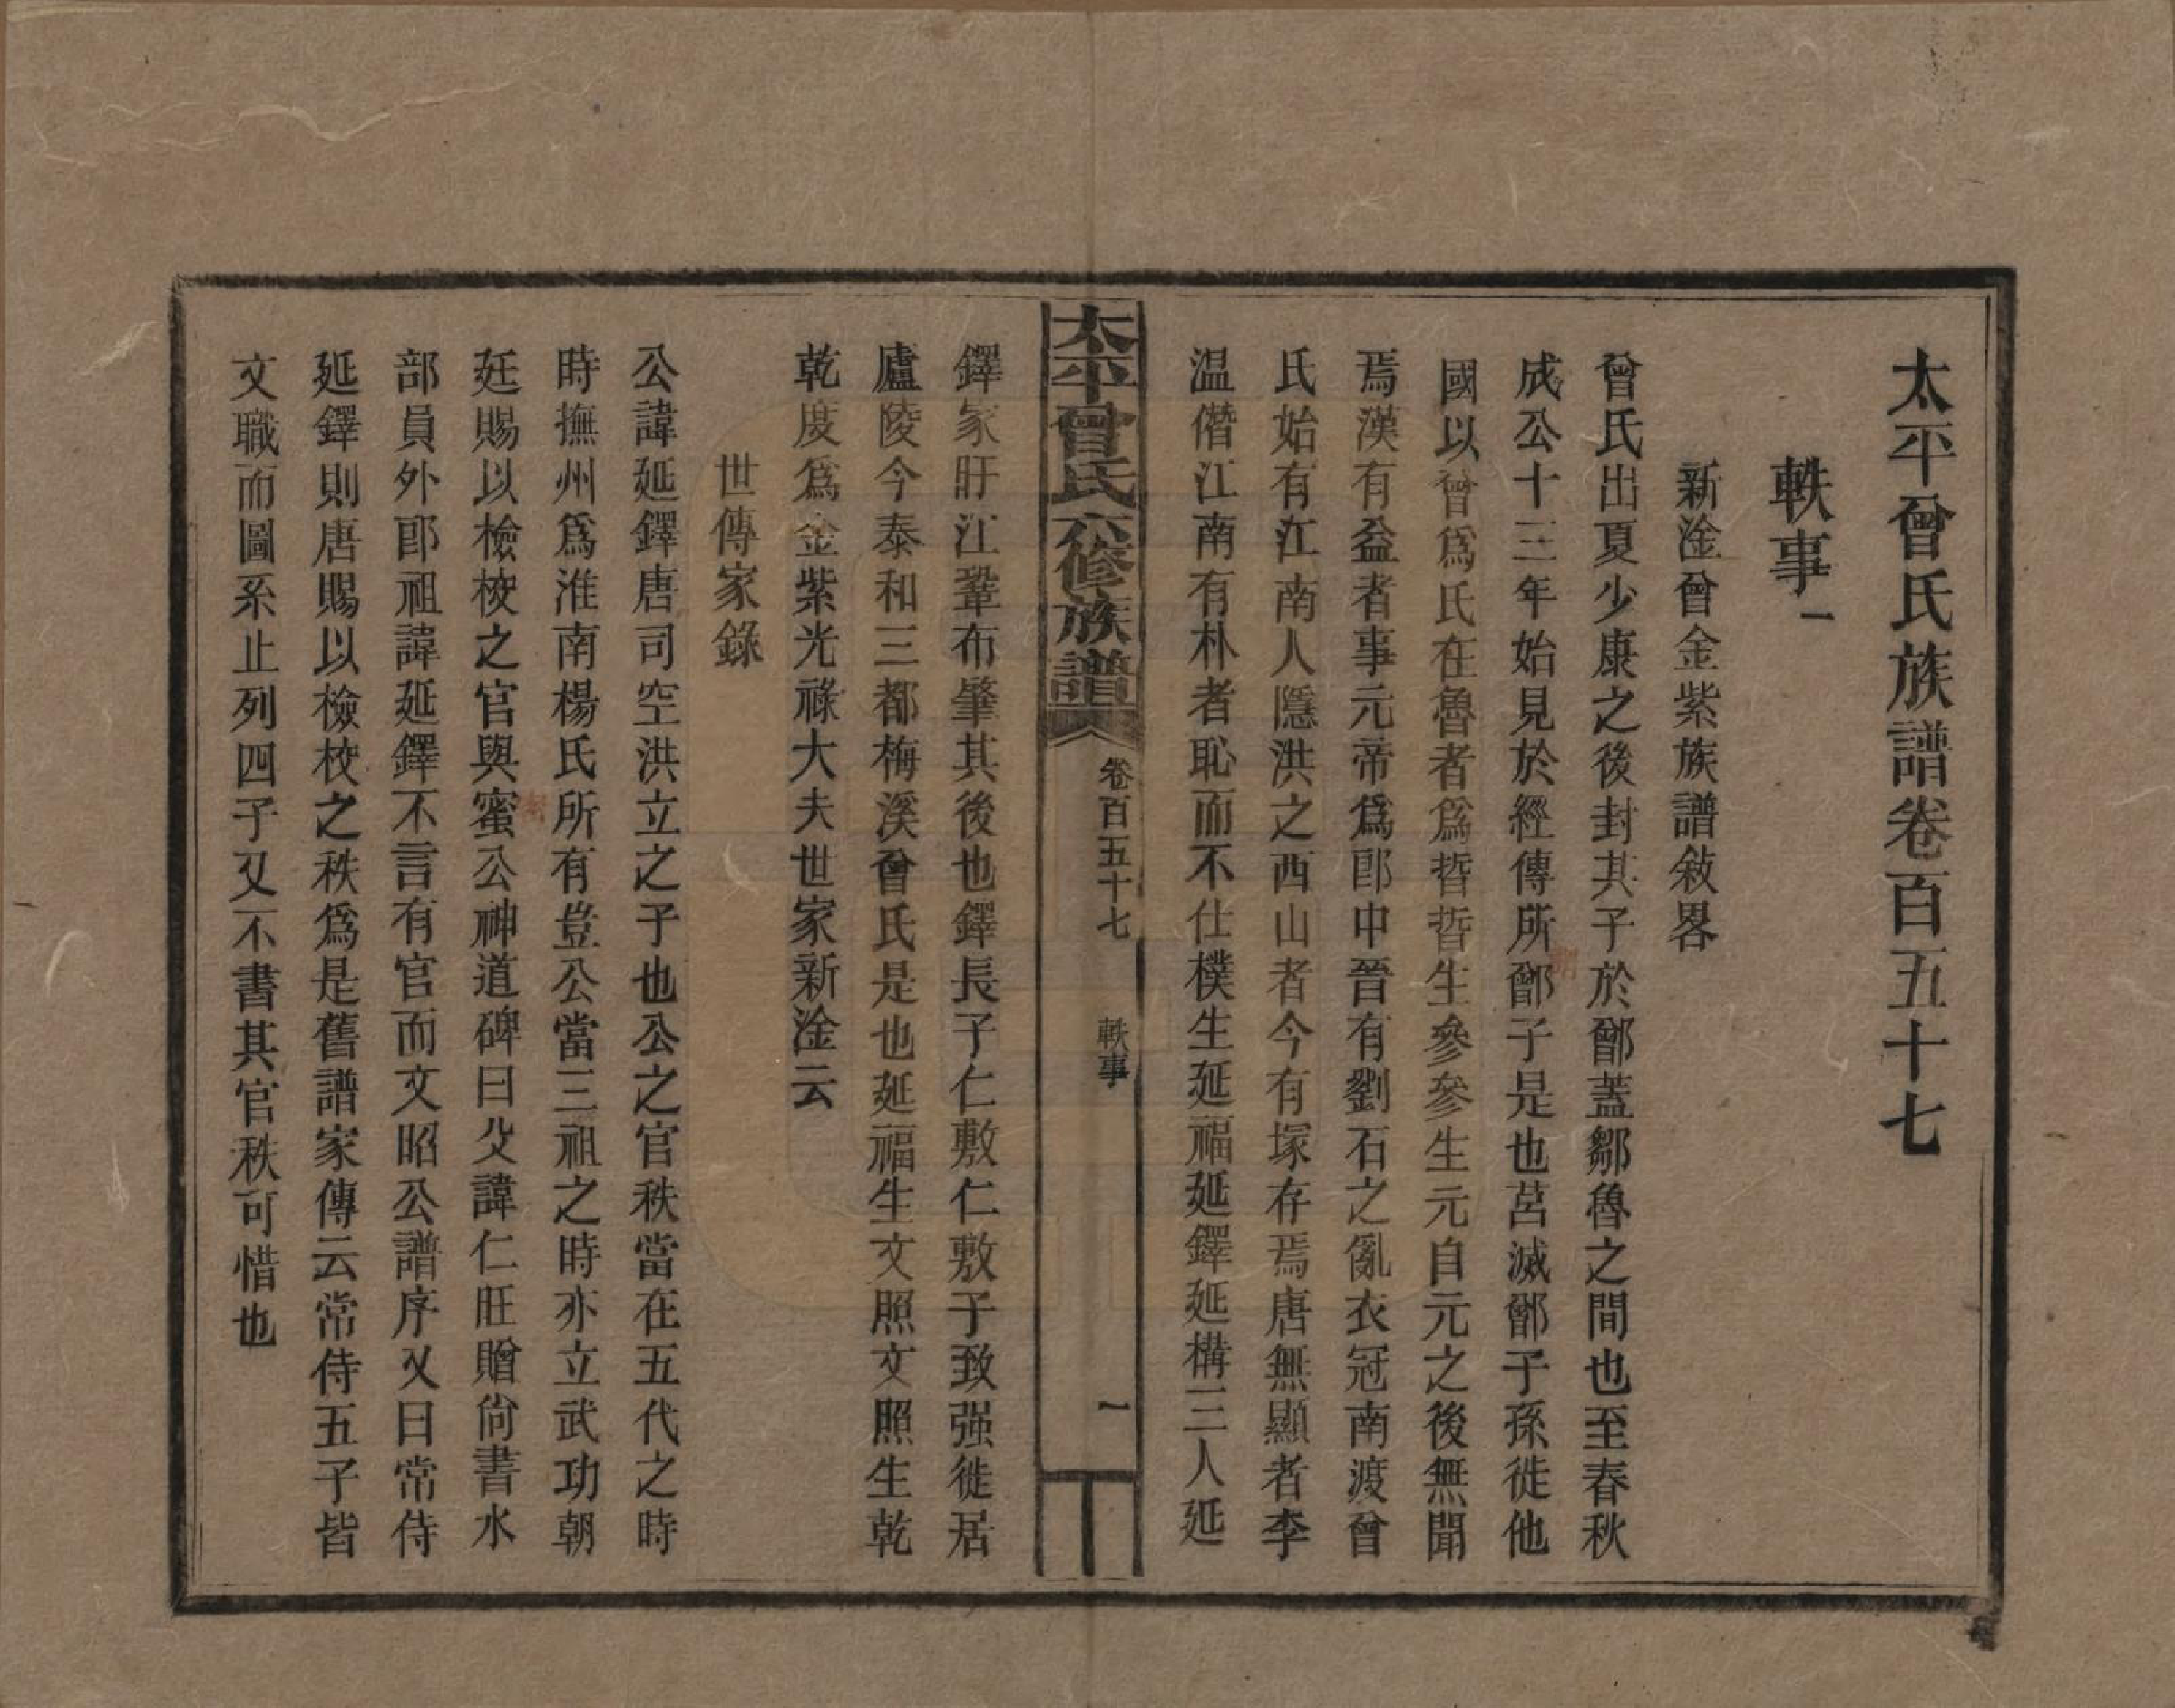 太平曾氏族譜卷百五十七
軼事一
新淦曾金紫族譜敘畧
曾氏出夏少康之後封其子於鄫蓋鄒魯之間也至春秋
成公十三年始見於經傳所鄫子是也莒滅鄫子孫徙他
國以曾爲氏在魯者爲晳晳生參參生元自元之後無聞
焉漢有益者事元帝爲郎中晉有劉石之亂衣冠南渡曾
氏始有江南人隱洪之西山者今有塚存焉唐無顯者李
温僭江南有朴者恥而不仕樸生延福延鐸延構三人延
太平曾氏六修族譜
卷百五十七
軼事
一
鐸家盱江鞏布肇其後也鐸長子仁敷仁敷子致强徙居
廬陵今泰和三都梅溪曾氏是也延福生文照文照生乾
乾度爲金紫光祿大夫世家新淦云
世傳家錄
公諱延鐸唐司空洪立之子也公之官秩當在五代之時
時撫州爲淮南楊氏所有豈公當三祖之時亦立武功朝
廷賜以檢校之官與蜜公神道碑曰父諱仁旺贈尚書水
部員外郎祖諱延鐸不言有官而文昭公譜序又曰常侍
延鐸則唐賜以檢校之秩爲是舊譜家傳云常侍五子皆
文職而圖系止列四子又不書其官秩可惜也